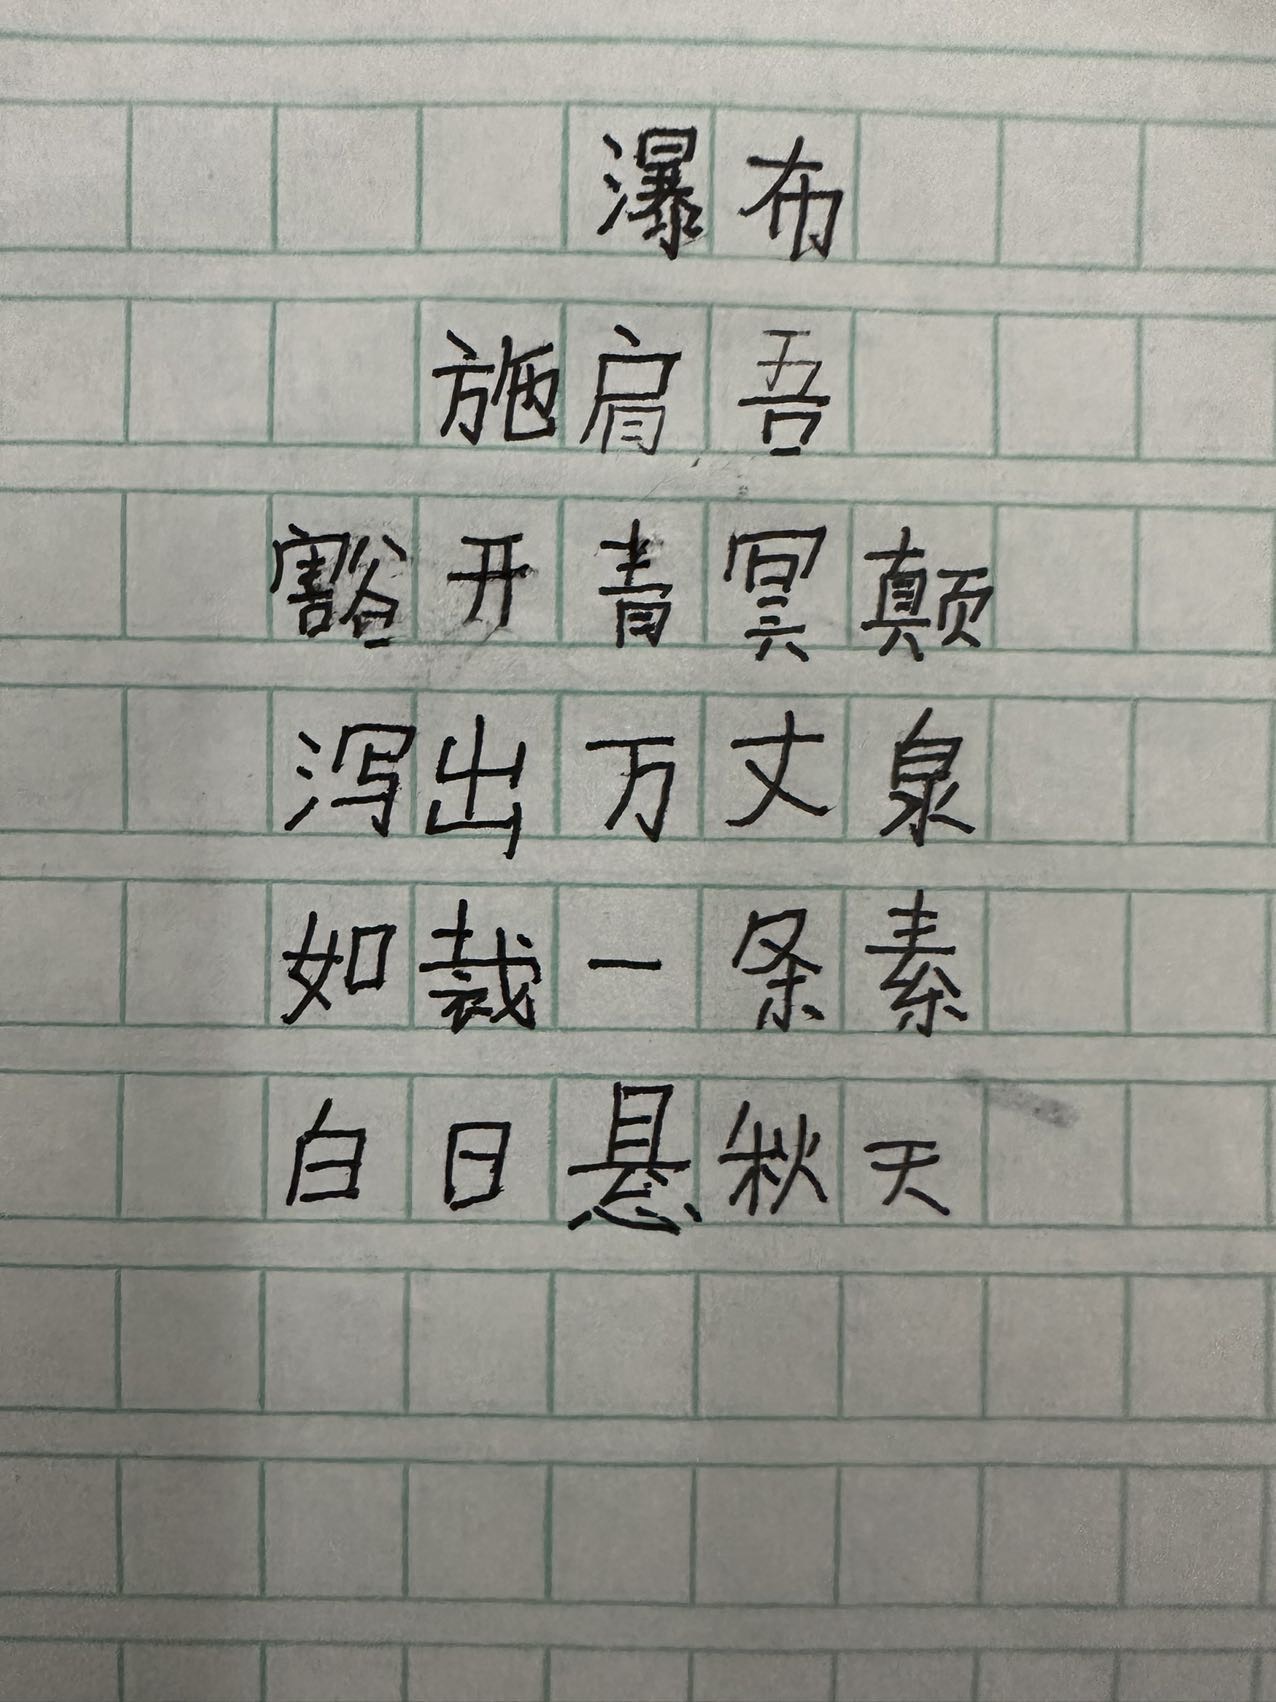 瀑布
施肩吾
豁开青冥颠
泻出万丈泉
如裁一条素
白日悬秋天